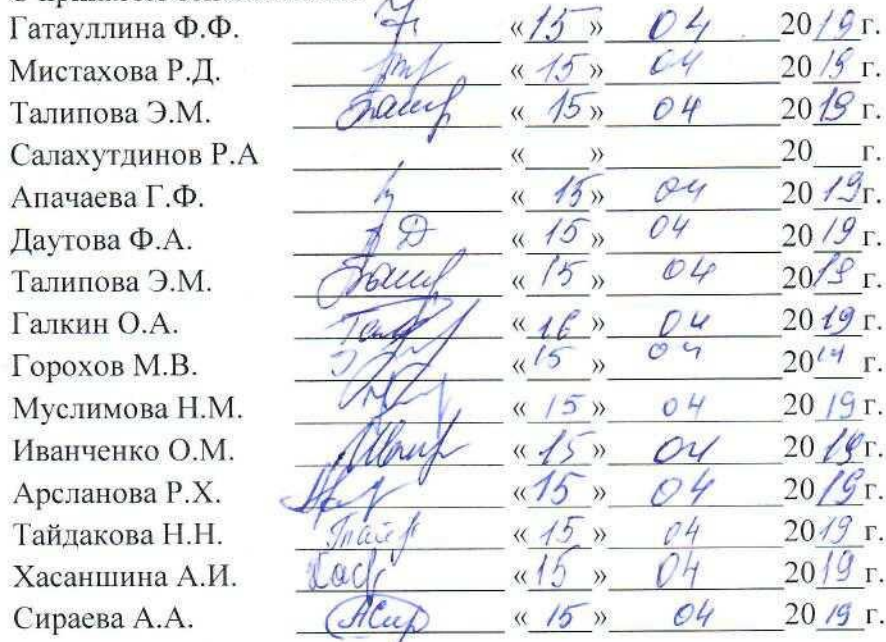 Гатауллина Ф.Ф. «15» 04 2019 г.
Мистахова Р.Д. «15» 04 2019 г.
Талипова Э.М. «15» 04 2019 г.
Салахутдинов Р.А «___» 20___г.
Апачаева Г.Ф. «15» 04 2019 г.
Даутова Ф.А. «15» 04 2019 г.
Талипова Э.М. «15» 04 2019 г.
Галкин О.А. «16» 04 2019 г.
Горохов М.В. «15» 04 20 г.
Муслимова Н.М. «15» 04 2019 г.
Иванченко О.М. «15» 04 2019 г.
Арсланова Р.Х. «15» 04 2019 г.
Тайдакова Н.Н. «15» 04 2019 г.
Хасаншина А.И. «15» 04 2019 г.
Сираева А.А. «15» 04 2019 г.